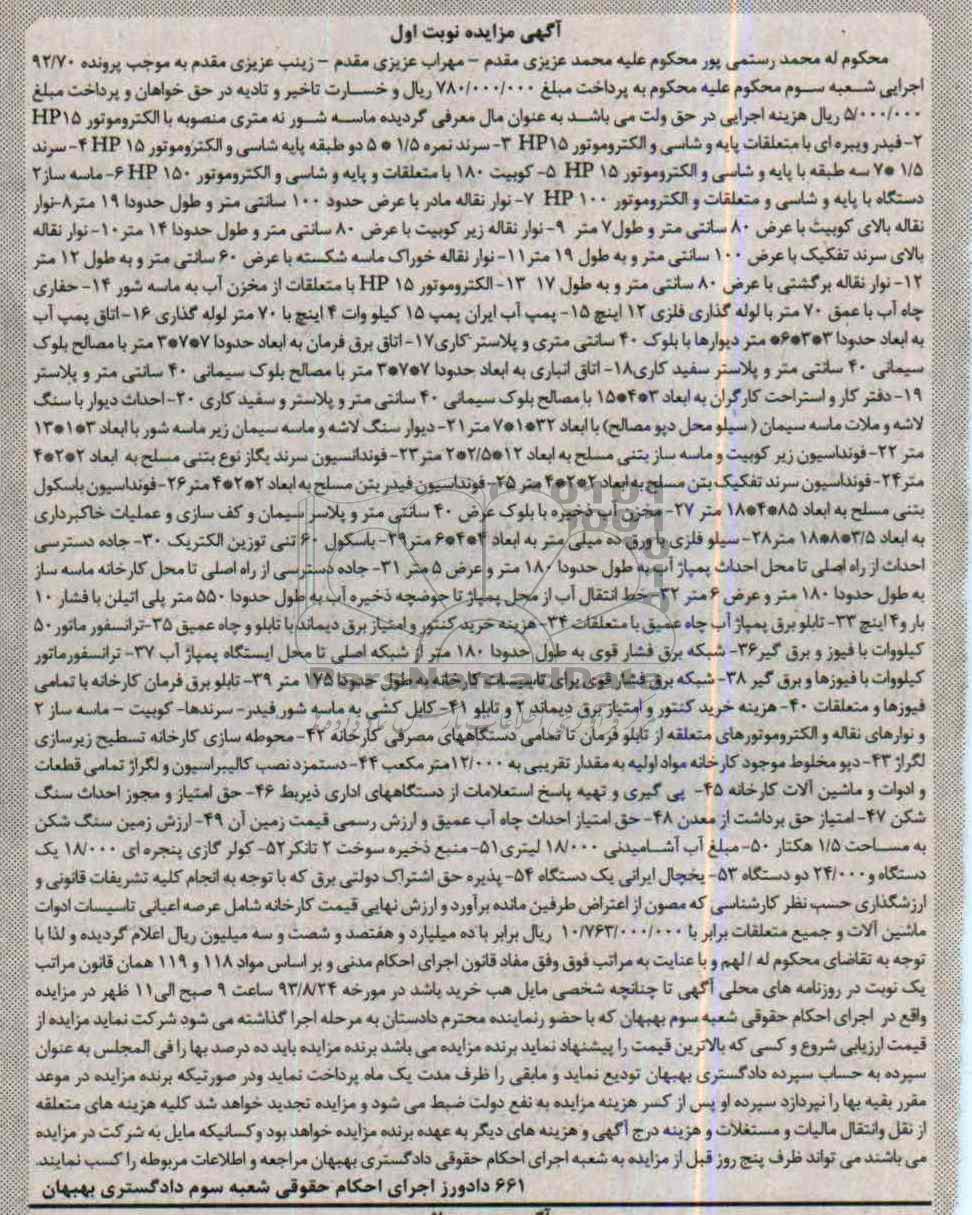 آگهی مزایده نوبت اول
محکوم له محمد رستمی پور محکوم علیه محمد عزیزی مقدم - مهراب عزیزی مقدم - زینب عزیزی مقدم به موجب پرونده ۹۲/۷۰
اجرایی شعبه سوم محکوم علیه محکوم به پرداخت مبلغ ۷۸۰/۰۰۰/۰۰۰ ریال و خسارت تاخیر و تادیه در حق خواهان و پرداخت مبلغ
۵/۰۰۰/۰۰۰ ریال هزینه اجرایی در حق ولت می باشد به عنوان مال معرفی گردیده ماسه شور نه متری منصوبه با الکتروموتور HP۱۵
۲- فیدر ویبره ای با متعلقات پایه و شاسی و الکتروموتور HP۱۵ ۳- سرند نمره ۱/۵ * ۵ دو طبقه پایه شاسی و الکتروموتور HP ۱۵ ۴- سرند
۱/۵ *۷ سه طبقه با پایه و شاسی و الکتروموتور HP ۱۵ ۵- کوبیت ۱۸۰ با متعلقات و پایه و شاسی و الکتروموتور HP ۱۵۰ ۶- ماسه ساز۲
دستگاه با پایه و شاسی و متعلقات و الکتروموتور HP ۱۰۰ ۷- نوار نقاله مادر با عرض حدود ۱۰۰ سانتی متر و طول حدودا ۱۹ متر۸-نوار
نقاله بالای کوبیت با عرض ۸۰ سانتی متر و طول۷ متر ۹- نوار نقاله زیر کوبیت با عرض ۸۰ سانتی متر و طول حدودا ۱۴ متر۱۰- نوار نقاله
بالای سرند تفکیک با عرض ۱۰۰ سانتی متر و به طول ۱۹ متر۱۱- نوار نقاله خوراک ماسه شکسته با عرض ۶۰ سانتی متر و به طول ۱۲ متر
۱۲- نوار نقاله برگشتی با عرض ۸۰ سانتی متر و به طول ۱۷ ۱۳- الکتروموتور HP ۱۵ با متعلقات از مخزن آب به ماسه شور ۱۴- حفاری
چاه آب با عمق ۷۰ متر با لوله گذاری فلزی ۱۲ اینچ ۱۵- پمپ آب ایران پمپ ۱۵ کیلو وات ۴ اینچ با ۷۰ متر لوله گذاری ۱۶-اتاق پمپ آب
به ابعاد حدودا ۳*۳*۶* متر دیوارها با بلوک ۴۰ سانتی متری و پلاستر کاری۱۷- اتاق برق فرمان به ابعاد حدودا ۷*۷*۳ متر با مصالح بلوک
سیمانی ۴۰ سانتی متر و پلاستر سفید کاری۱۸- اتاق انباری به ابعاد حدودا ۷*۷*۳ متر با مصالح بلوک سیمانی ۴۰ سانتی متر و پلاستر
۱۹- دفتر کار و استراحت کارگران به ابعاد ۳*۴*۱۵ با مصالح بلوک سیمانی ۴۰ سانتی متر و پلاستر و سفید کاری ۲۰- احداث دیوار با سنگ
لاشه و ملات ماسه سیمان ( سیلو محل دپو مصالح) با ابعاد ۳۲*۱*۷ متر۲۱- دیوار سنگ لاشه و ماسه سیمان زیر ماسه شور با ابعاد ۳*۱*۱۳
متر ۲۲- فونداسیون زیر کوبیت و ماسه ساز بتنی مسلح به ابعاد ۱۲*۲/۵*۲ متر۲۳- فوندانسیون سرند یگاز نوع بتنی مسلح به ابعاد ۲*۲*۴
متر۲۴- فونداسیون سرند تفکیک بتن مسلح به ابعاد ۲*۲*۴ متر ۲۵- فونداسیون فیدر بتن مسلح به ابعاد ۲*۲*۴ متر۲۶- فونداسیون باسکول
بتنی مسلح به ابعاد ۸۵*۴*۱۸ متر ۲۷- مخزن آب ذخیره با بلوک عرض ۴۰ سانتی متر و پلاسر سیمان و کف سازی و عملیات خاکبرداری
به ابعاد ۳/۵*۸*۱۸ متر۲۸- سیلو فلزی با ورق ده میلی متر به ابعاد ۴*۴*۶ متر۲۹- باسکول ۶۰ تنی توزین الکتریک ۳۰- جاده دسترسی
احداث از راه اصلی تا محل احداث پمپاژ آب به طول حدودا ۱۸۰ متر و عرض ۵ متر ۳۱- جاده دسترسی از راه اصلی تا محل کارخانه ماسه ساز
به طول حدودا ۱۸۰ متر و عرض ۶ متر ۳۲-خط انتقال آب از محل پمپاژ تا حوضچه ذخیره آب به طول حدودا ۵۵۰ متر پلی اتیلن با فشار ۱۰
بار و۴ اینچ ۳۳- تابلو برق پمپاژ آب چاه عمیق با متعلقات ۳۴- هزینه خرید کنتور و امتیاز برق دیماند با تابلو و چاه عمیق ۳۵-ترانسفور ماتور ۵۰
کیلووات با فیوز و برق گیر۳۶- شبکه برق فشار قوی به طول حدودا ۱۸۰ متر از شبکه اصلی تا محل ایستگاه پمپاژ آب ۳۷- ترانسفورماتور
کیلووات با فیوزها و برق گیر ۳۸- شبکه برق فشار قوی برای تاسیسات کارخانه به طول حدودا ۱۷۵ متر ۳۹- تابلو برق فرمان کارخانه با تمامی
فیوزها و متعلقات ۴۰- هزینه خرید کنتور و امتیاز برق دیماند ۲ و تابلو ۴۱- کابل کشی به ماسه شور فیدر- سرندها- کوبیت - ماسه ساز ۲
و نوارهای نقاله و الکتروموتورهای متعلقه از تابلو فرمان تا تمامی دستگاههای مصرفی کارخانه ۴۲- محوطه سازی کارخانه تسطیح زیرسازی
لگراژ ۴۳- دپو مخلوط موجود کارخانه مواد اولیه به مقدار تقریبی به ۱۲/۰۰۰متر مکعب ۴۴- دستمزد نصب کالیبراسیون و لگراژ تمامی قطعات
و ادوات و ماشین آلات کارخانه ۴۵- پی گیری و تهیه پاسخ استعلامات از دستگاههای اداری ذیربط ۴۶- حق امتیاز و مجوز احداث سنگ
شکن ۴۷- امتیاز حق برداشت از معدن ۴۸- حق امتیاز احداث چاه آب عمیق و ارزش رسمی قیمت زمین آن ۴۹- ارزش زمین سنگ شکن
به مساحت ۱/۵ هکتار ۵۰- مبلغ آب آشامیدنی ۱۸/۰۰۰ لیتری۵۱- منبع ذخیره سوخت ۲ تانکر۵۲- کولر گازی پنجره ای ۱۸/۰۰۰ یک
دستگاه و۲۴/۰۰۰ دو دستگاه ۵۳- یخچال ایرانی یک دستگاه ۵۴- پذیره حق اشتراک دولتی برق که با توجه به انجام کلیه تشریفات قانونی و
ارزشگذاری حسب نظر کارشناسی که مصون از اعتراض طرفین مانده برآورد و ارزش نهایی قیمت کارخانه شامل عرصه اعیانی تاسیسات ادوات
ماشین آلات و جمیع متعلقات برابر با ۱۰/۷۶۳/۰۰۰/۰۰۰ ریال برابر با ده میلیارد و هفتصد و شصت و سه میلیون ریال اعلام گردیده و لذا با
توجه به تقاضای محکوم له / لهم و با عنایت به مراتب فوق وفق مفاد قانون اجرای احکام مدنی و بر اساس مواد ۱۱۸ و ۱۱۹ همان قانون مراتب
یک نوبت در روزنامه های محلی آگهی تا چنانچه شخصی مایل هب خرید باشد در مورخه ۹۳/۸/۲۴ ساعت ۹ صبح الی۱۱ ظهر در مزایده
واقع در اجرای احکام حقوقی شعبه سوم بهبهان که با حضو رنماینده محترم دادستان به مرحله اجرا گذاشته می شود شرکت نماید مزایده از
قیمت ارزیابی شروع و کسی که بالاترین قیمت را پیشنهاد نماید برنده مزایده می باشد برنده مزایده باید ده درصد بها را فی المجلس به عنوان
سپرده به حساب سپرده دادگستری بهبهان تودیع نماید و مابقی را ظرف مدت یک ماه پرداخت نماید ودر صورتیکه برنده مزایده در موعد
مقرر بقیه بها را نپردازد سپرده او پس از کسر هزینه مزایده به نفع دولت ضبط می شود و مزایده تجدید خواهد شد کلیه هزینه های متعلقه
از نقل وانتقال مالیات و مستغلات و هزینه درج آگهی و هزینه های دیگر به عهده برنده مزایده خواهد بود وکسانیکه مایل به شرکت در مزایده
می باشند می تواند ظرف پنج روز قبل از مزایده به شعبه اجرای احکام حقوقی دادگستری بهبهان مراجعه و اطلاعات مربوطه را کسب نمایند.
۶۶۱ دادورز اجرای احکام حقوقی شعبه سوم دادگستری بهبهان